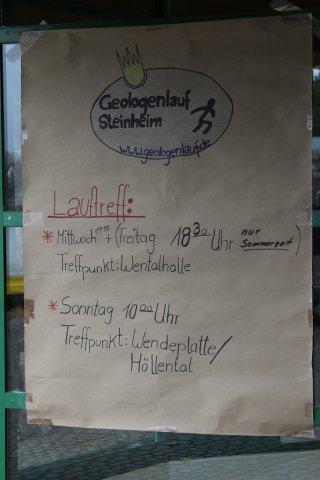 Geologenlauf
Steinheim
www.geologenlauf.de
Lauftreff:
* Mittwoch + (Freitag 18³⁰ Uhr nur Sommerzeit)
Treffpunkt: Wentalhalle
* Sonntag 10⁰⁰ Uhr
Treffpunkt: Wendeplatte/
Höllental